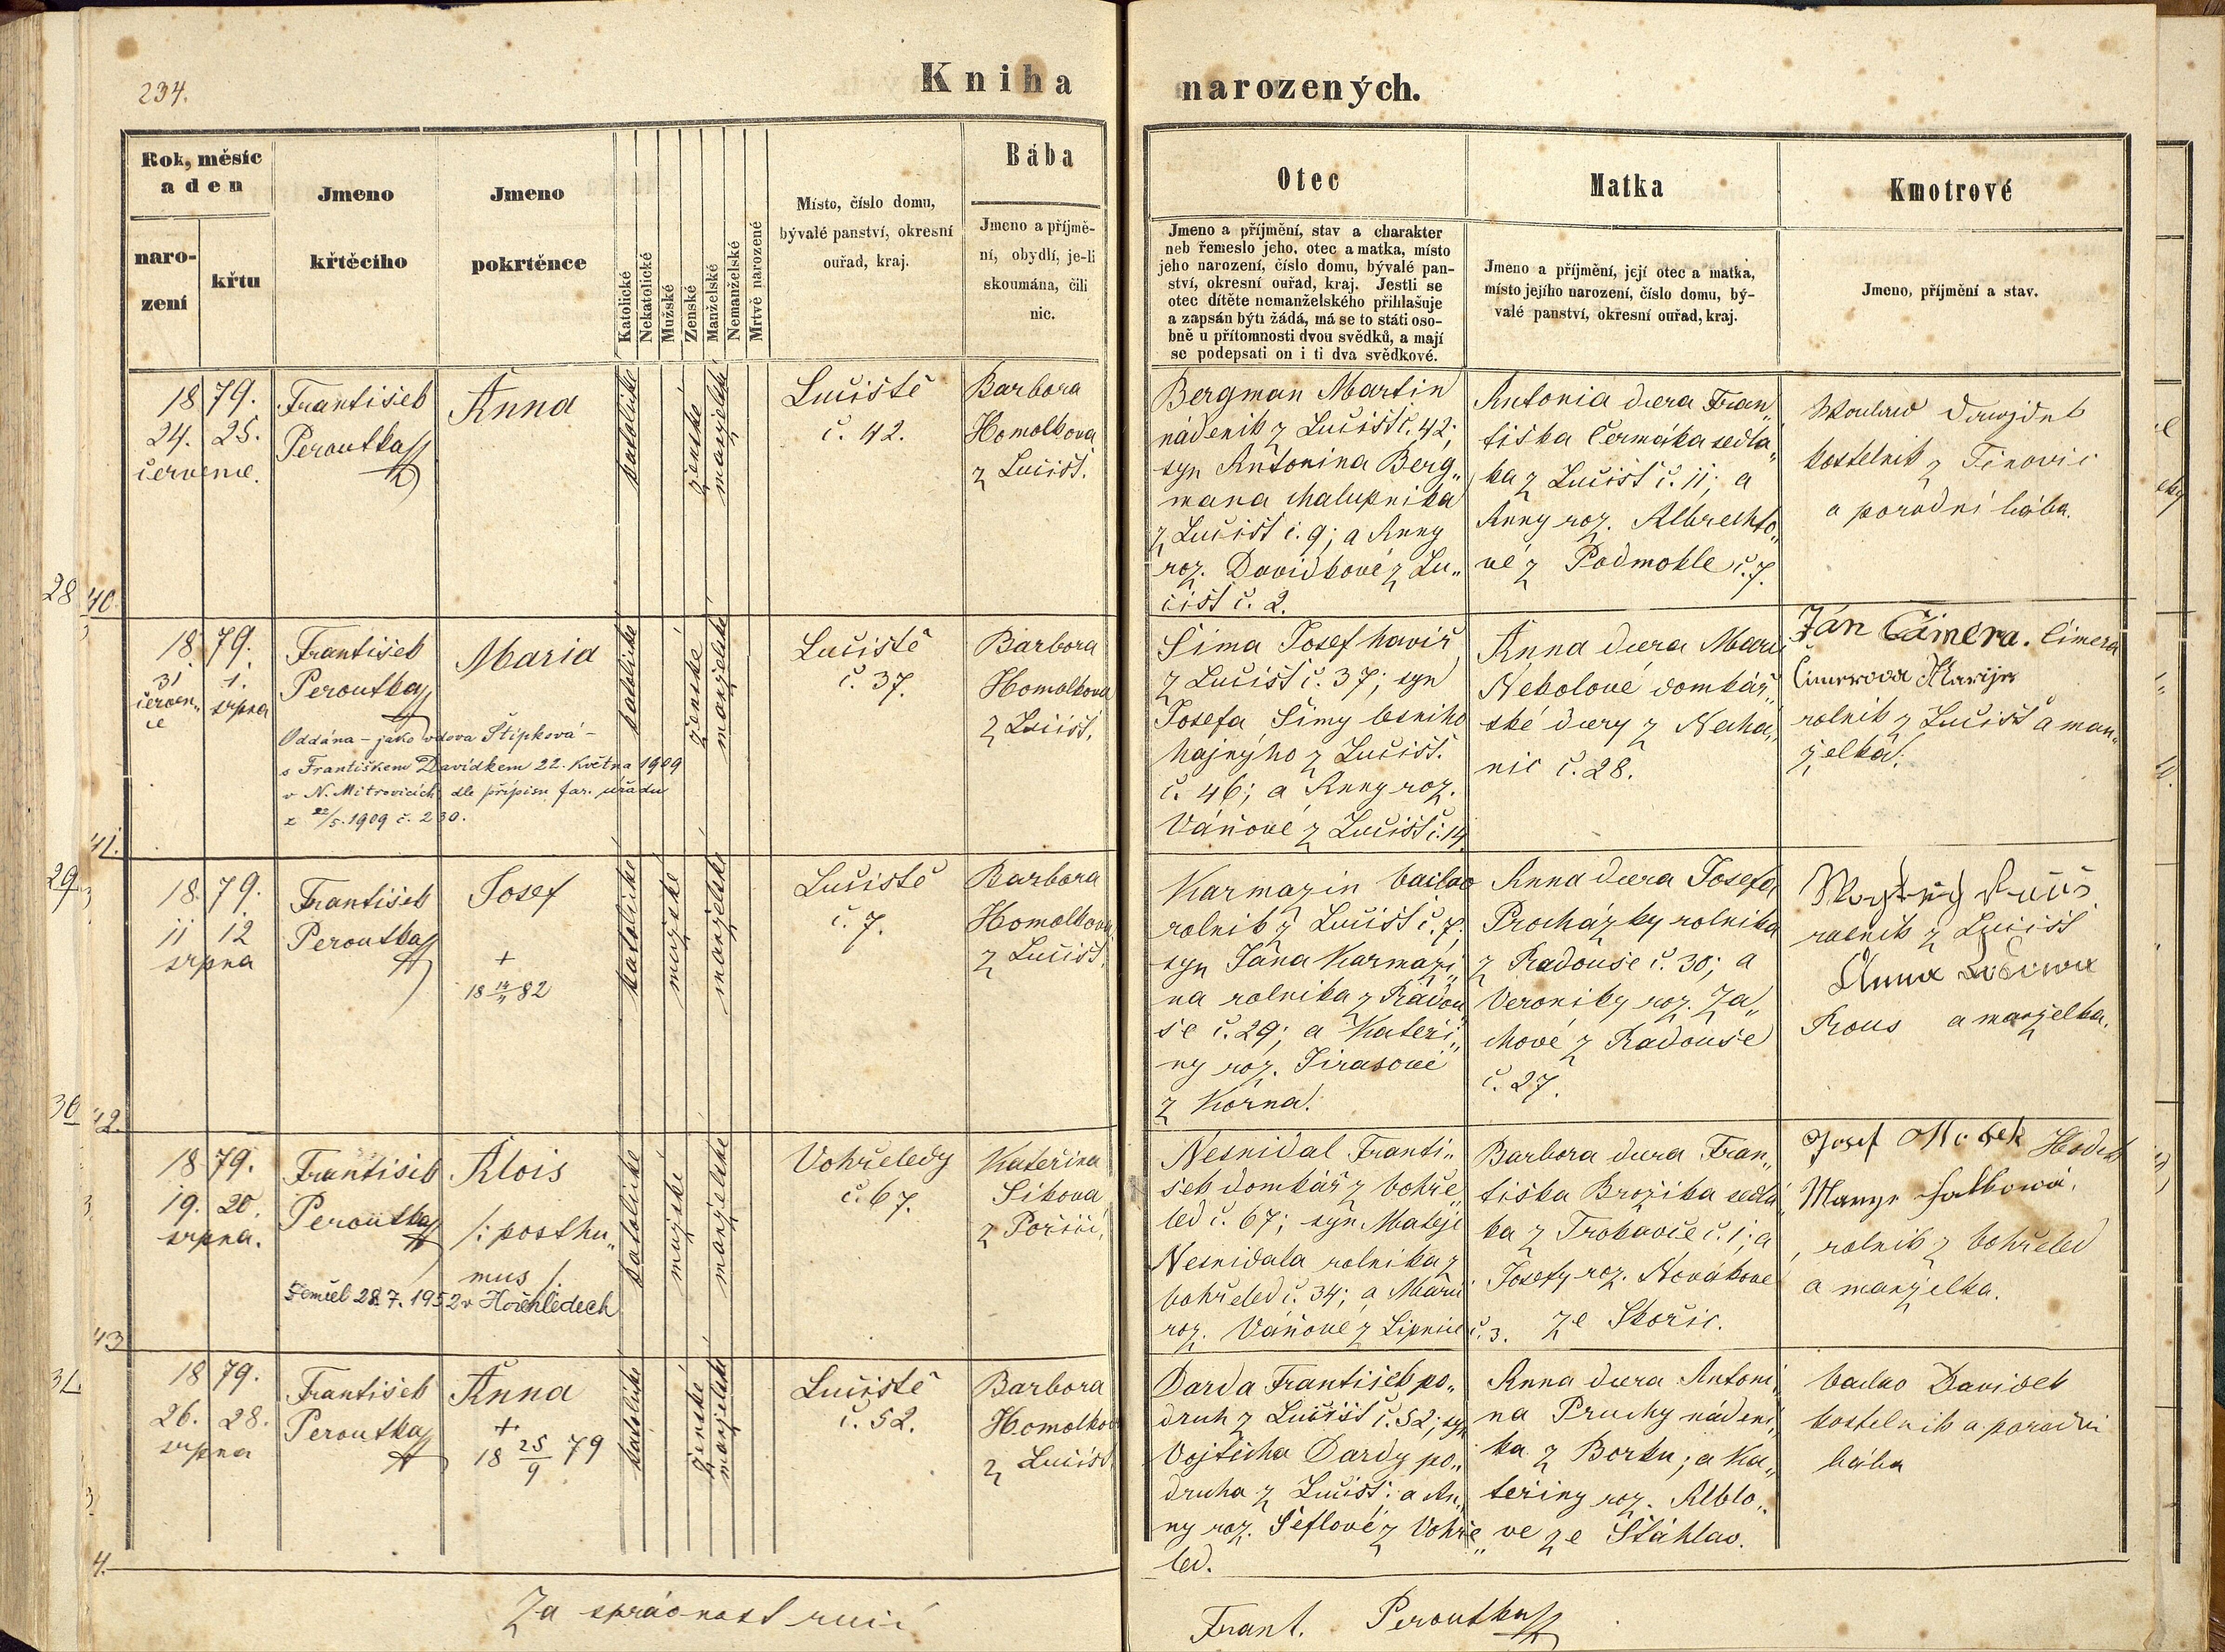 234.
Kniha
narozených.
Rok, měsíc
a den
naro-
zení
křtu
Jmeno
křtěcího
Jmeno
pokrtěnce
Katolické
Nekatolické
Mužské
Zenské
Manželské
Nemanželské
Mrtvě narozené
Místo, číslo domu,
bývalé panství, okresní
ouřad, kraj.
Bába
Jmeno a příjmě-
ní, obydlí, je-li
skoumána, čili
nic.
Otec
Jmeno a příjmění, stav a charakter
neb řemeslo jeho, otec a matka, místo
jeho narození, číslo domu, bývalé pan-
ství, okresní ouřad, kraj. Jestli se
otec dítěte nemanželského přihlašuje
a zapsán býti žádá, má se to státi oso-
bně u přítomnosti dvou svědků, a mají
se podepsati on i ti dva svědkové.
Matka
Jmeno a příjmění, její otec a matka,
místo jejího narození, číslo domu, bý-
valé panství, okresní ouřad, kraj.
Kmotrové
Jmeno, příjmění a stav.
1879.
24. 25.
července.
František
Peroutka
Anna
katolické
ženské
manželské
Lučiště
č. 42.
Barbora
Homolková
z Lučišť.
Bergman Martin
nádeník z Lučišť č. 42;
syn Antonína Berg„
mana chalupníka
z Lučišť č. 9; a Anny
roz. Davidkové z Lu„
čišť č. 2.
Antonia dcera Fran„
tiška Čermáka sedlá„
ka z Lučišť č. 11; a
Anny roz. Albrechto„
vé z Podmokle č. 7.
kostelník z Těnovic
a porodní bába.
28
40.
1879.
31 1.
červen„ srpna
ce
František
Peroutka
Maria
Oddána – jako vdova Štipková –
s Františkem Davídkem 22. května 1909
v N. Mitrovicích dle přípisu far. úřadu
z 22/5. 1909 č. 230.
katolické
ženské
manželské
Lučiště
č. 37.
Barbora
Homolková
z Lučišť.
Šíma Josef havíř
z Lučišť č. 37; syn
Josefa Šímy lesního
hajného z Lučišť
č. 46; a Anny roz.
Váňové z Lučišť č. 14
Anna dcera Marie
Nebolové domkář„
ské dcery z Nechá„
nic č. 28.
Jan Čimera. Čimera
Čimerova Marije
rolník z Lučišť a man„
želka.
41.
29
1879.
11 12
srpna
František
Peroutka
Josef
+
18 14/11 82
katolické
mužské
manželské
Lučiště
č. 7.
Barbora
Homolková
z Lučišť.
Karmazin Václav
rolník z Lučišť č. 7;
syn Jana Karmazi„
na rolníka z Radou
še č. 29; a Kateři„
ny roz. Jirasové
z Korna.
Anna dcera Josefa
Procházky rolníka
z Radouše č. 30; a
Veroniky roz. Za„
chové z Radouše
č. 27.
rolník z Lučišť
Anna
a manželka.
30
42.
1879.
19. 20.
srpna.
František
Peroutka
Alois
/: posthu„
mus /.
Zemřel 28.7.1952 v Hořehledech
katolické
mužské
manželské
Vohřeledy
č. 67.
Kateřina
Síkova
z Poříčí.
Nesnídal Franti„
šek domkář z Vohře„
led č. 67; syn Matěje
Nesnídala rolníka z
Vohřeled č. 34; a Marii
roz. Váňové z Lipnice č. 3.
Barbora dcera Fran„
tiška Brožíka sedlá„
ka z Trokavce č. 1; a
Josefy roz. Novákové
ze Skořic.
Josef
rolník z Vohřeled
a manželka.
43
31.
1879.
26. 28.
srpna
František
Peroutka
Anna
+
18 25/9 79
katolické
ženské
manželské
Lučiště
č. 52.
Barbora
Homolková
z Lučišť.
Darda František po„
druh z Lučišť č. 52; syn
Vojtěcha Dardy po„
druha z Lučišť; a An„
ny roz. Šeflové z Vohře„
led.
Anna dcera Antoni„
na Pruchy nádení„
ka z Borku; a Ka„
teřiny roz. Alblo„
ve ze Šťáhlav.
Václav Davidek
kostelník a porodní
bába
4.
Za správnost ručí
Frant. Peroutka